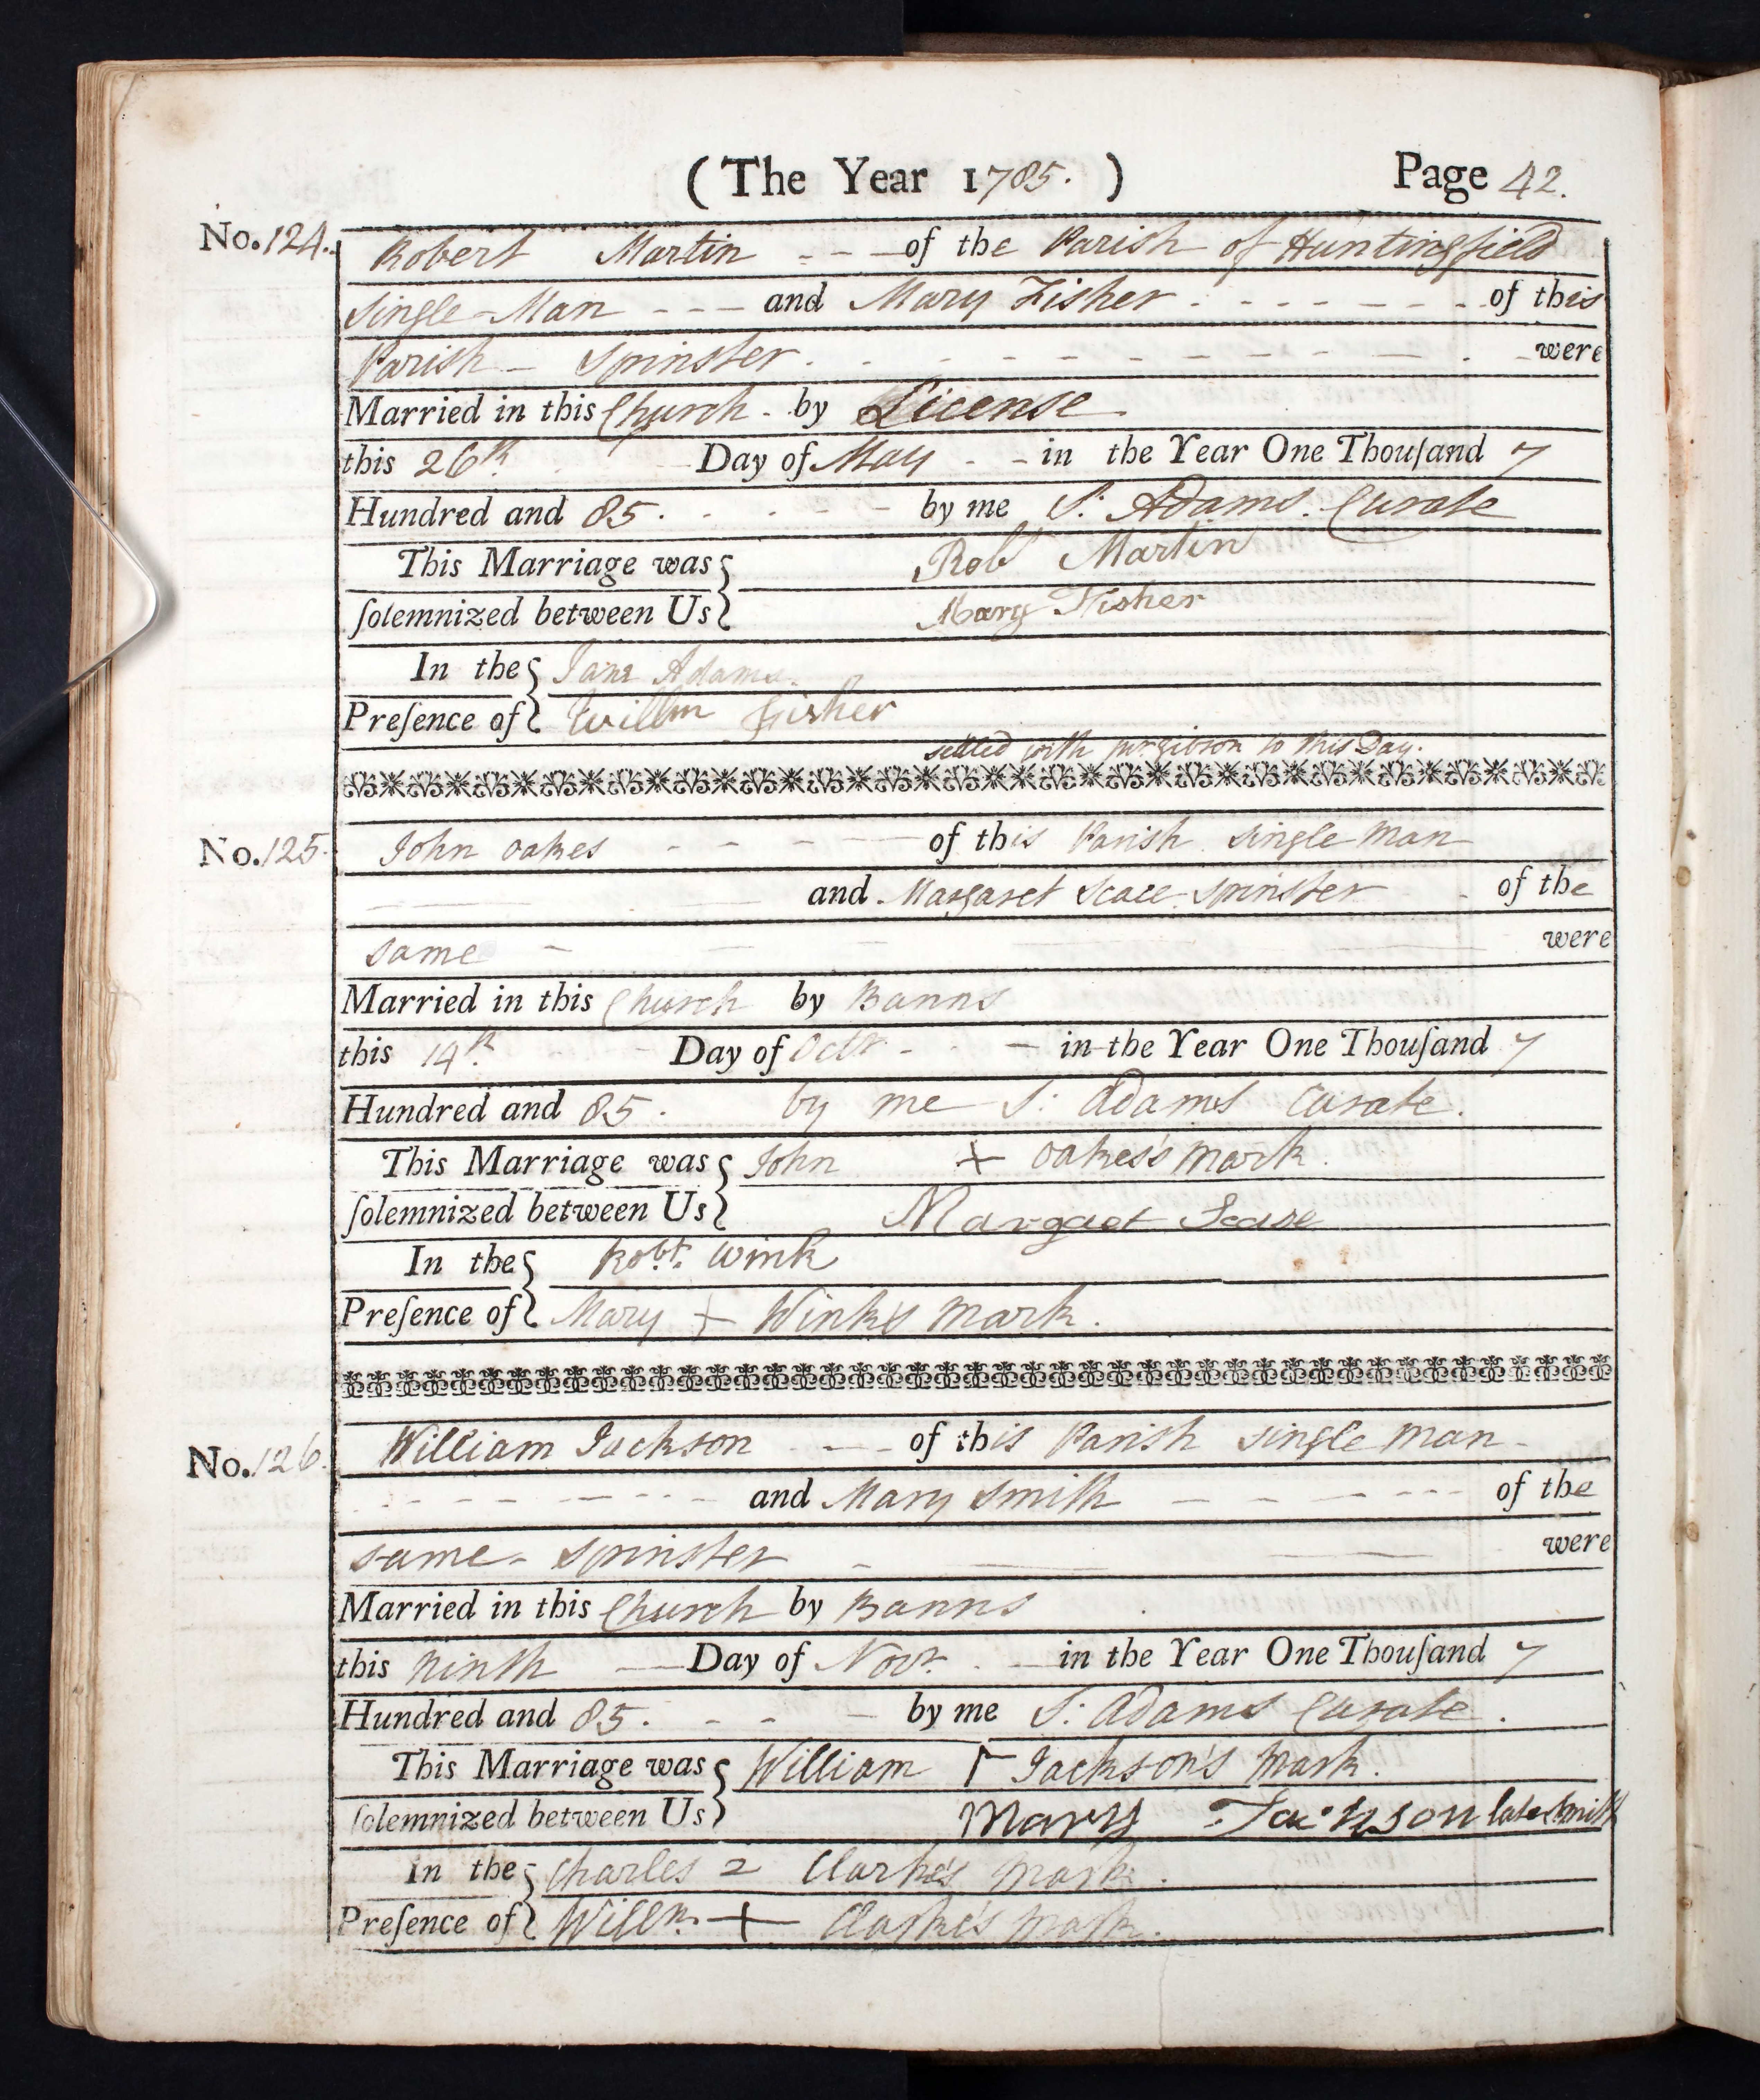 (The Year 1785.) Page 42.
No. 124. Robert Martin - - - of the Parish of Huntingfield
Single-Man - - - and Mary Fisher - - - - - - - of this
Parish - Spinster. - - - - - - - - - - were
Married in this Church - by License.
this 26th Day of May - - in the Year One Thouſand 7
Hundred and 85. - - - - - by me S: Adams. Curate
This Marriage was Robt Martin
ſolemnized between Us Mary Fisher
In the Jane Adams.
Preſence of Willm Fisher
settled with to this Day.
No. 125. John Oakes - - - - of this Parish Single Man
and Margaret Scace Spinster - of the
same - - - - were
Married in this Church by Banns
this 14th Day of Octr - - in the Year One Thouſand 7
Hundred and 85. by me S: Adams Curate.
This Marriage was John + Oakes's Mark.
ſolemnized between Us Margaet
In the Robt. Wink
Preſence of Mary + Winks Mark.
No. 126. William Jackson - - - of this Parish Single Man -
- - - - - - and Mary Smith - - - - - of the
same - Spinster - - - were
Married in this Church by Banns
this ninth Day of Novr. - - in the Year One Thouſand 7
Hundred and 85. - - - by me S: Adams Curate.
This Marriage was William Γ Jackson's Mark.
ſolemnized between Us Mary Jackson late Smith
In the Charles 2 Clarke's Mark.
Preſence of Willm. + Clarke's Mark.